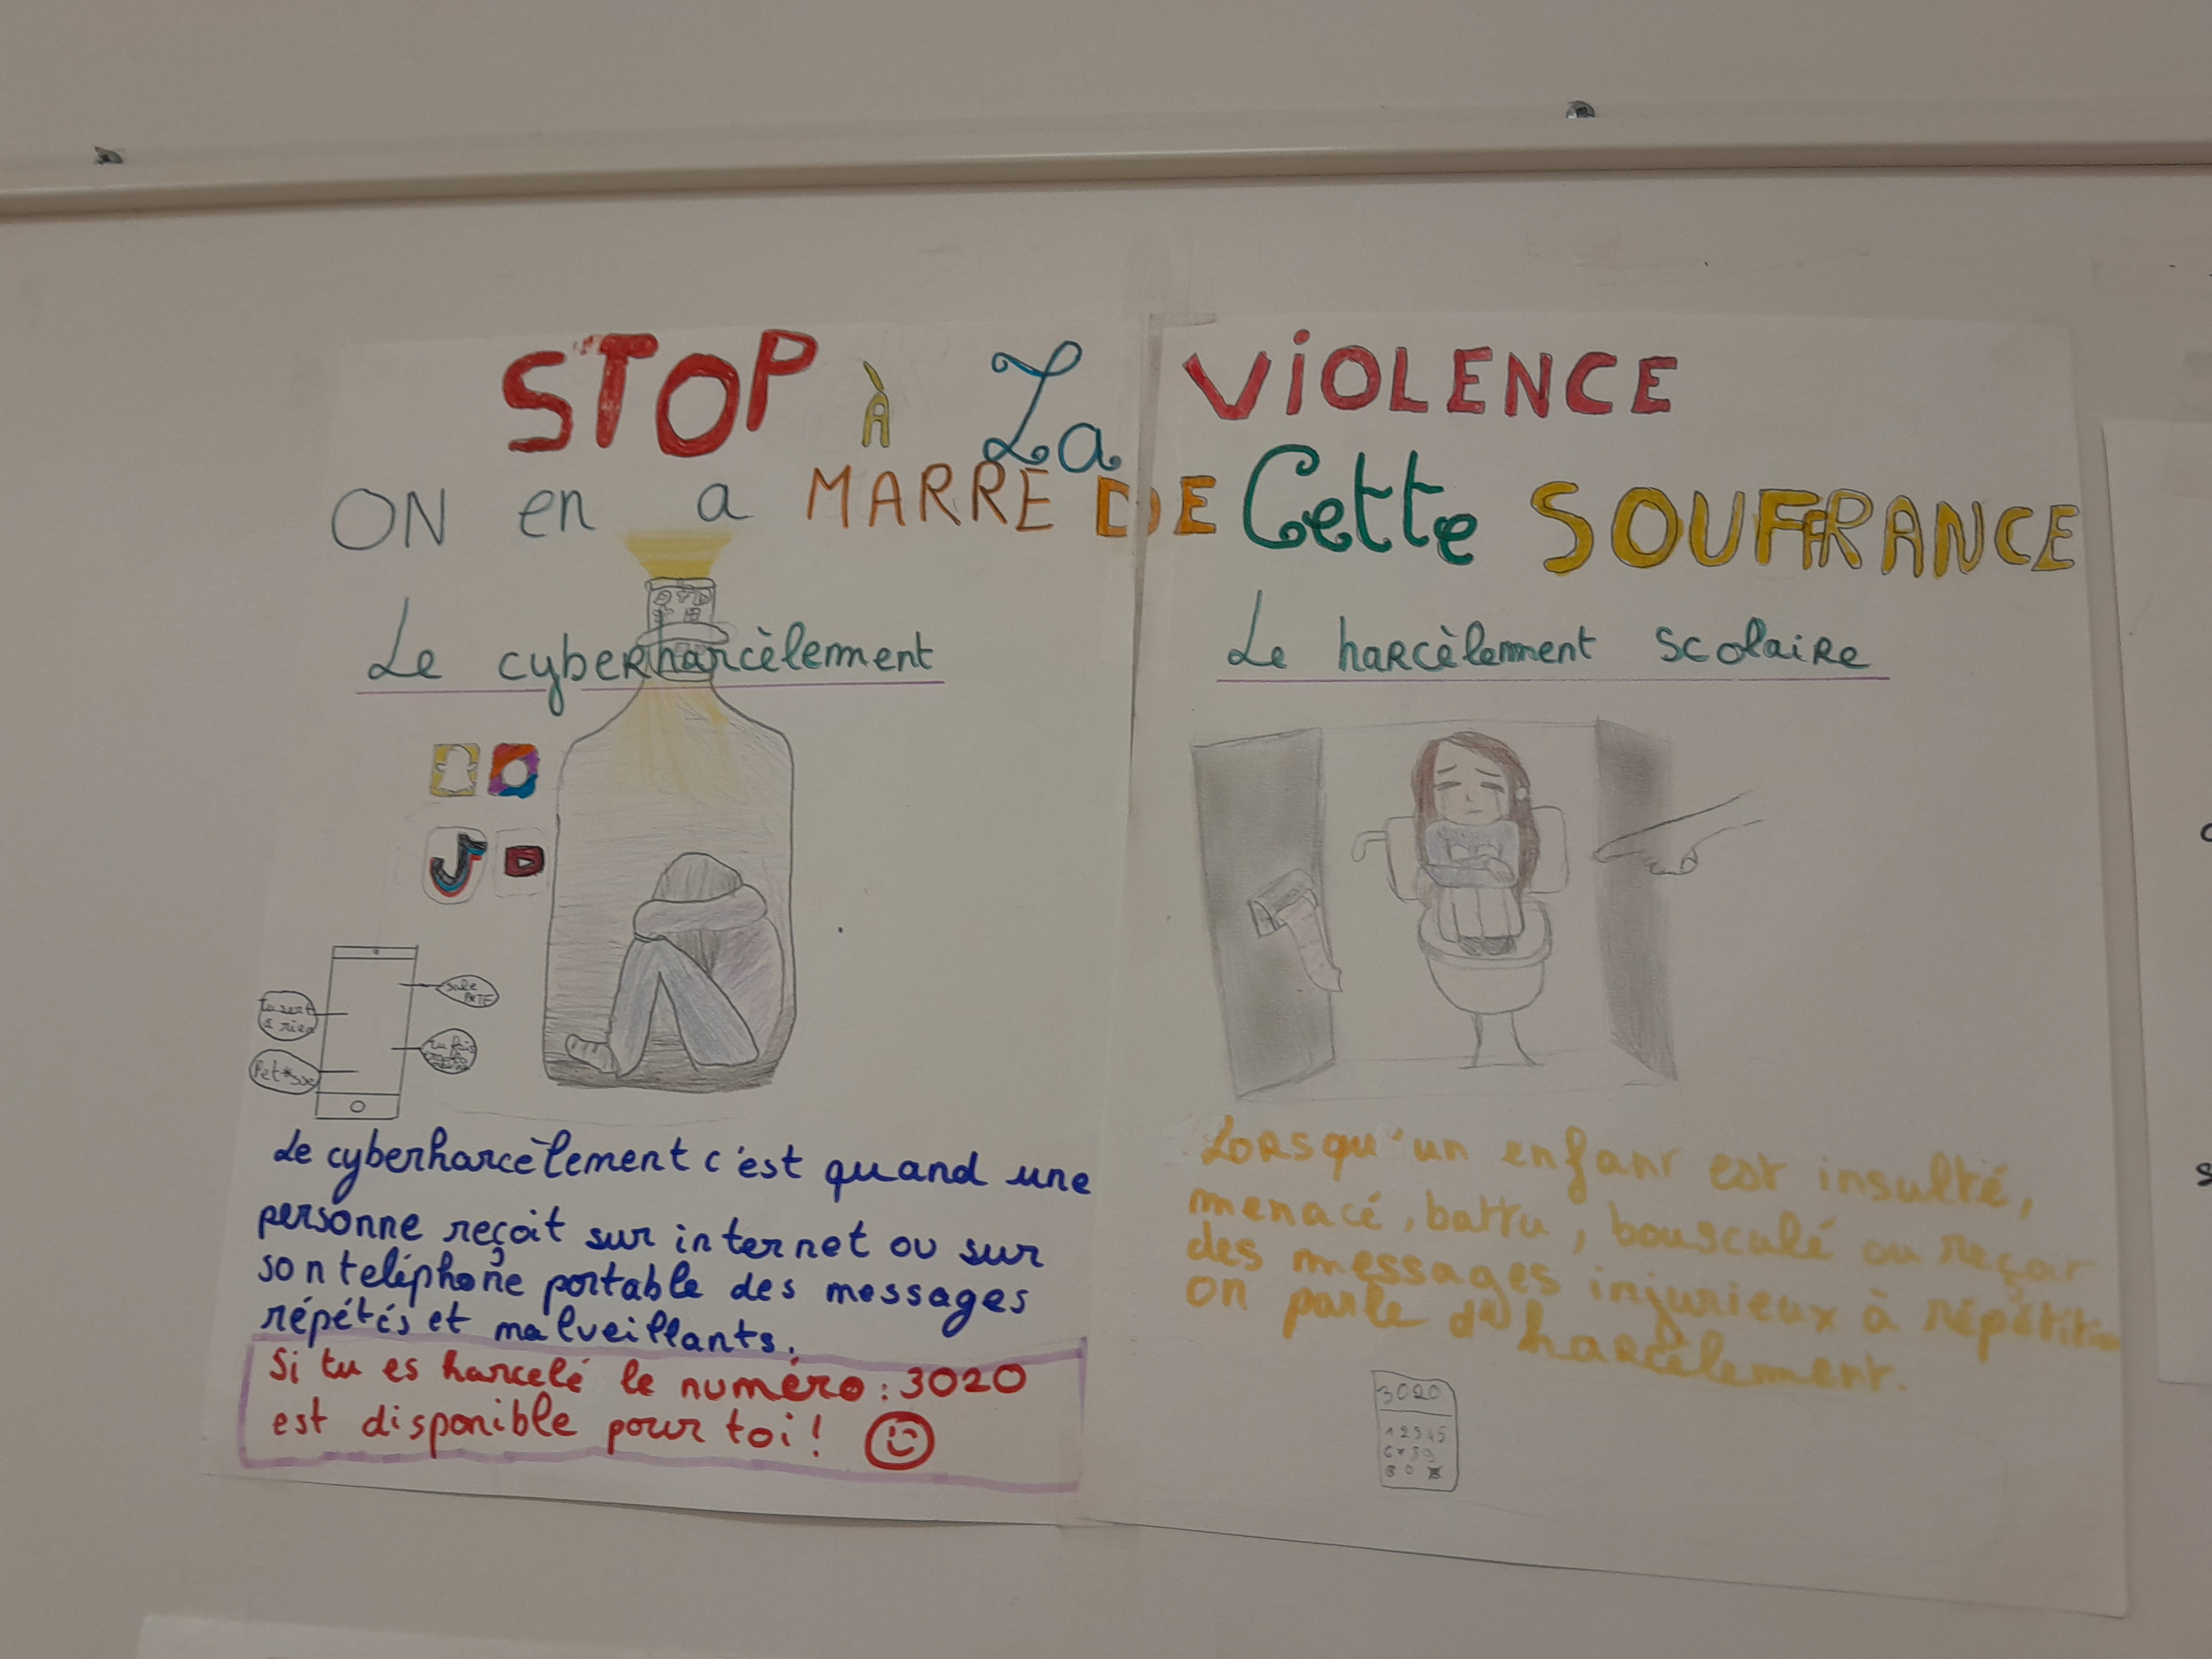 STOP à La VIOLENCE
ON en a MARRE DE Cette SOUFFRANCE
Le cyberharcèlement
sale
Tu sert
à rien
tu fais
Pet*sse
Le cyberharcèlement c'est quand une
personne reçoit sur internet ou sur
son teléphone portable des messages
répétés et malveillants.
Si tu es harcelé le numéro : 3020
est disponible pour toi !
Le harcèlement scolaire
Lorsqu'un enfant est insulté,
menacé, battu, bousculé ou reçoit
des messages injurieux à répétition
on parle d'harcèlement.
3020
1 2 3 4 5